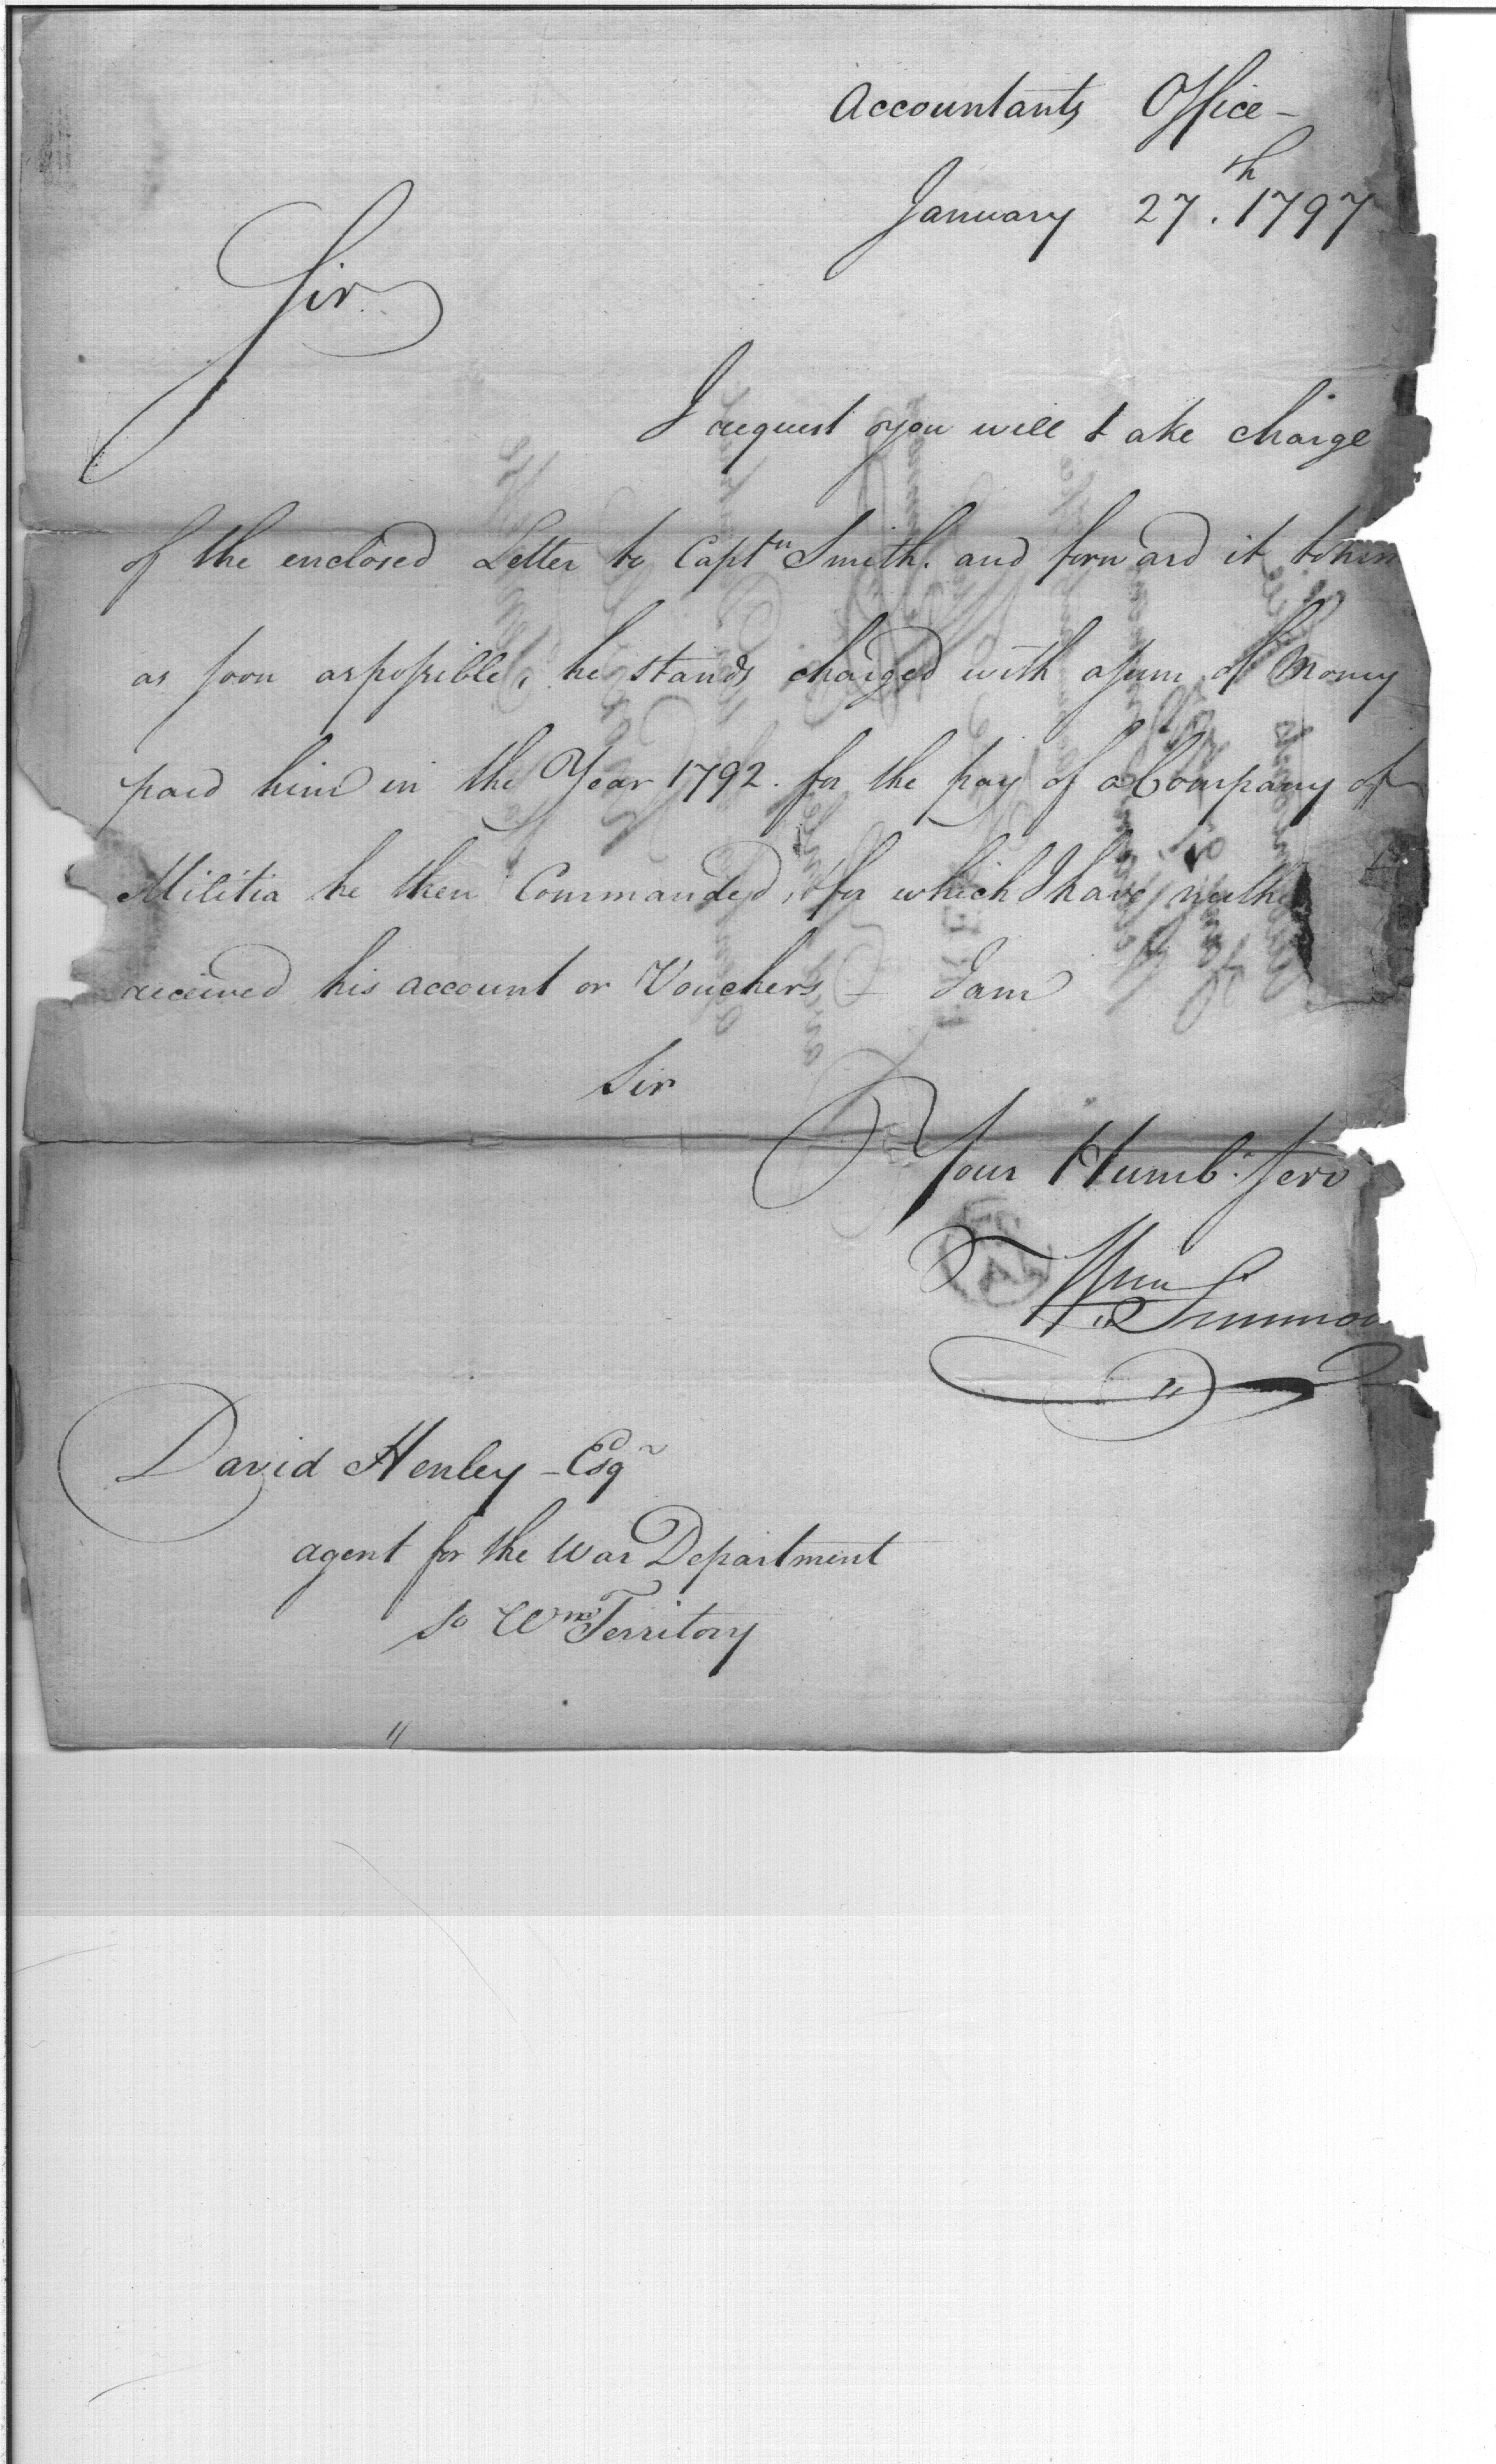 Accountants Office -
January 27th. 1797
Sir
I request you will take charge
of the enclosed Letter to Captn Smith. and forward it to him
as soon as possible, he stands charged with a sum of Money
paid him in the Year 1792. for the pay of a Company of
Militia he then Commanded, for which I have neithe
received his account or Vouchers - I am
Sir
Your Humb. Serv
Wm Simmon
David Henley - Esqr
agent for the War Department
So Wn Territory